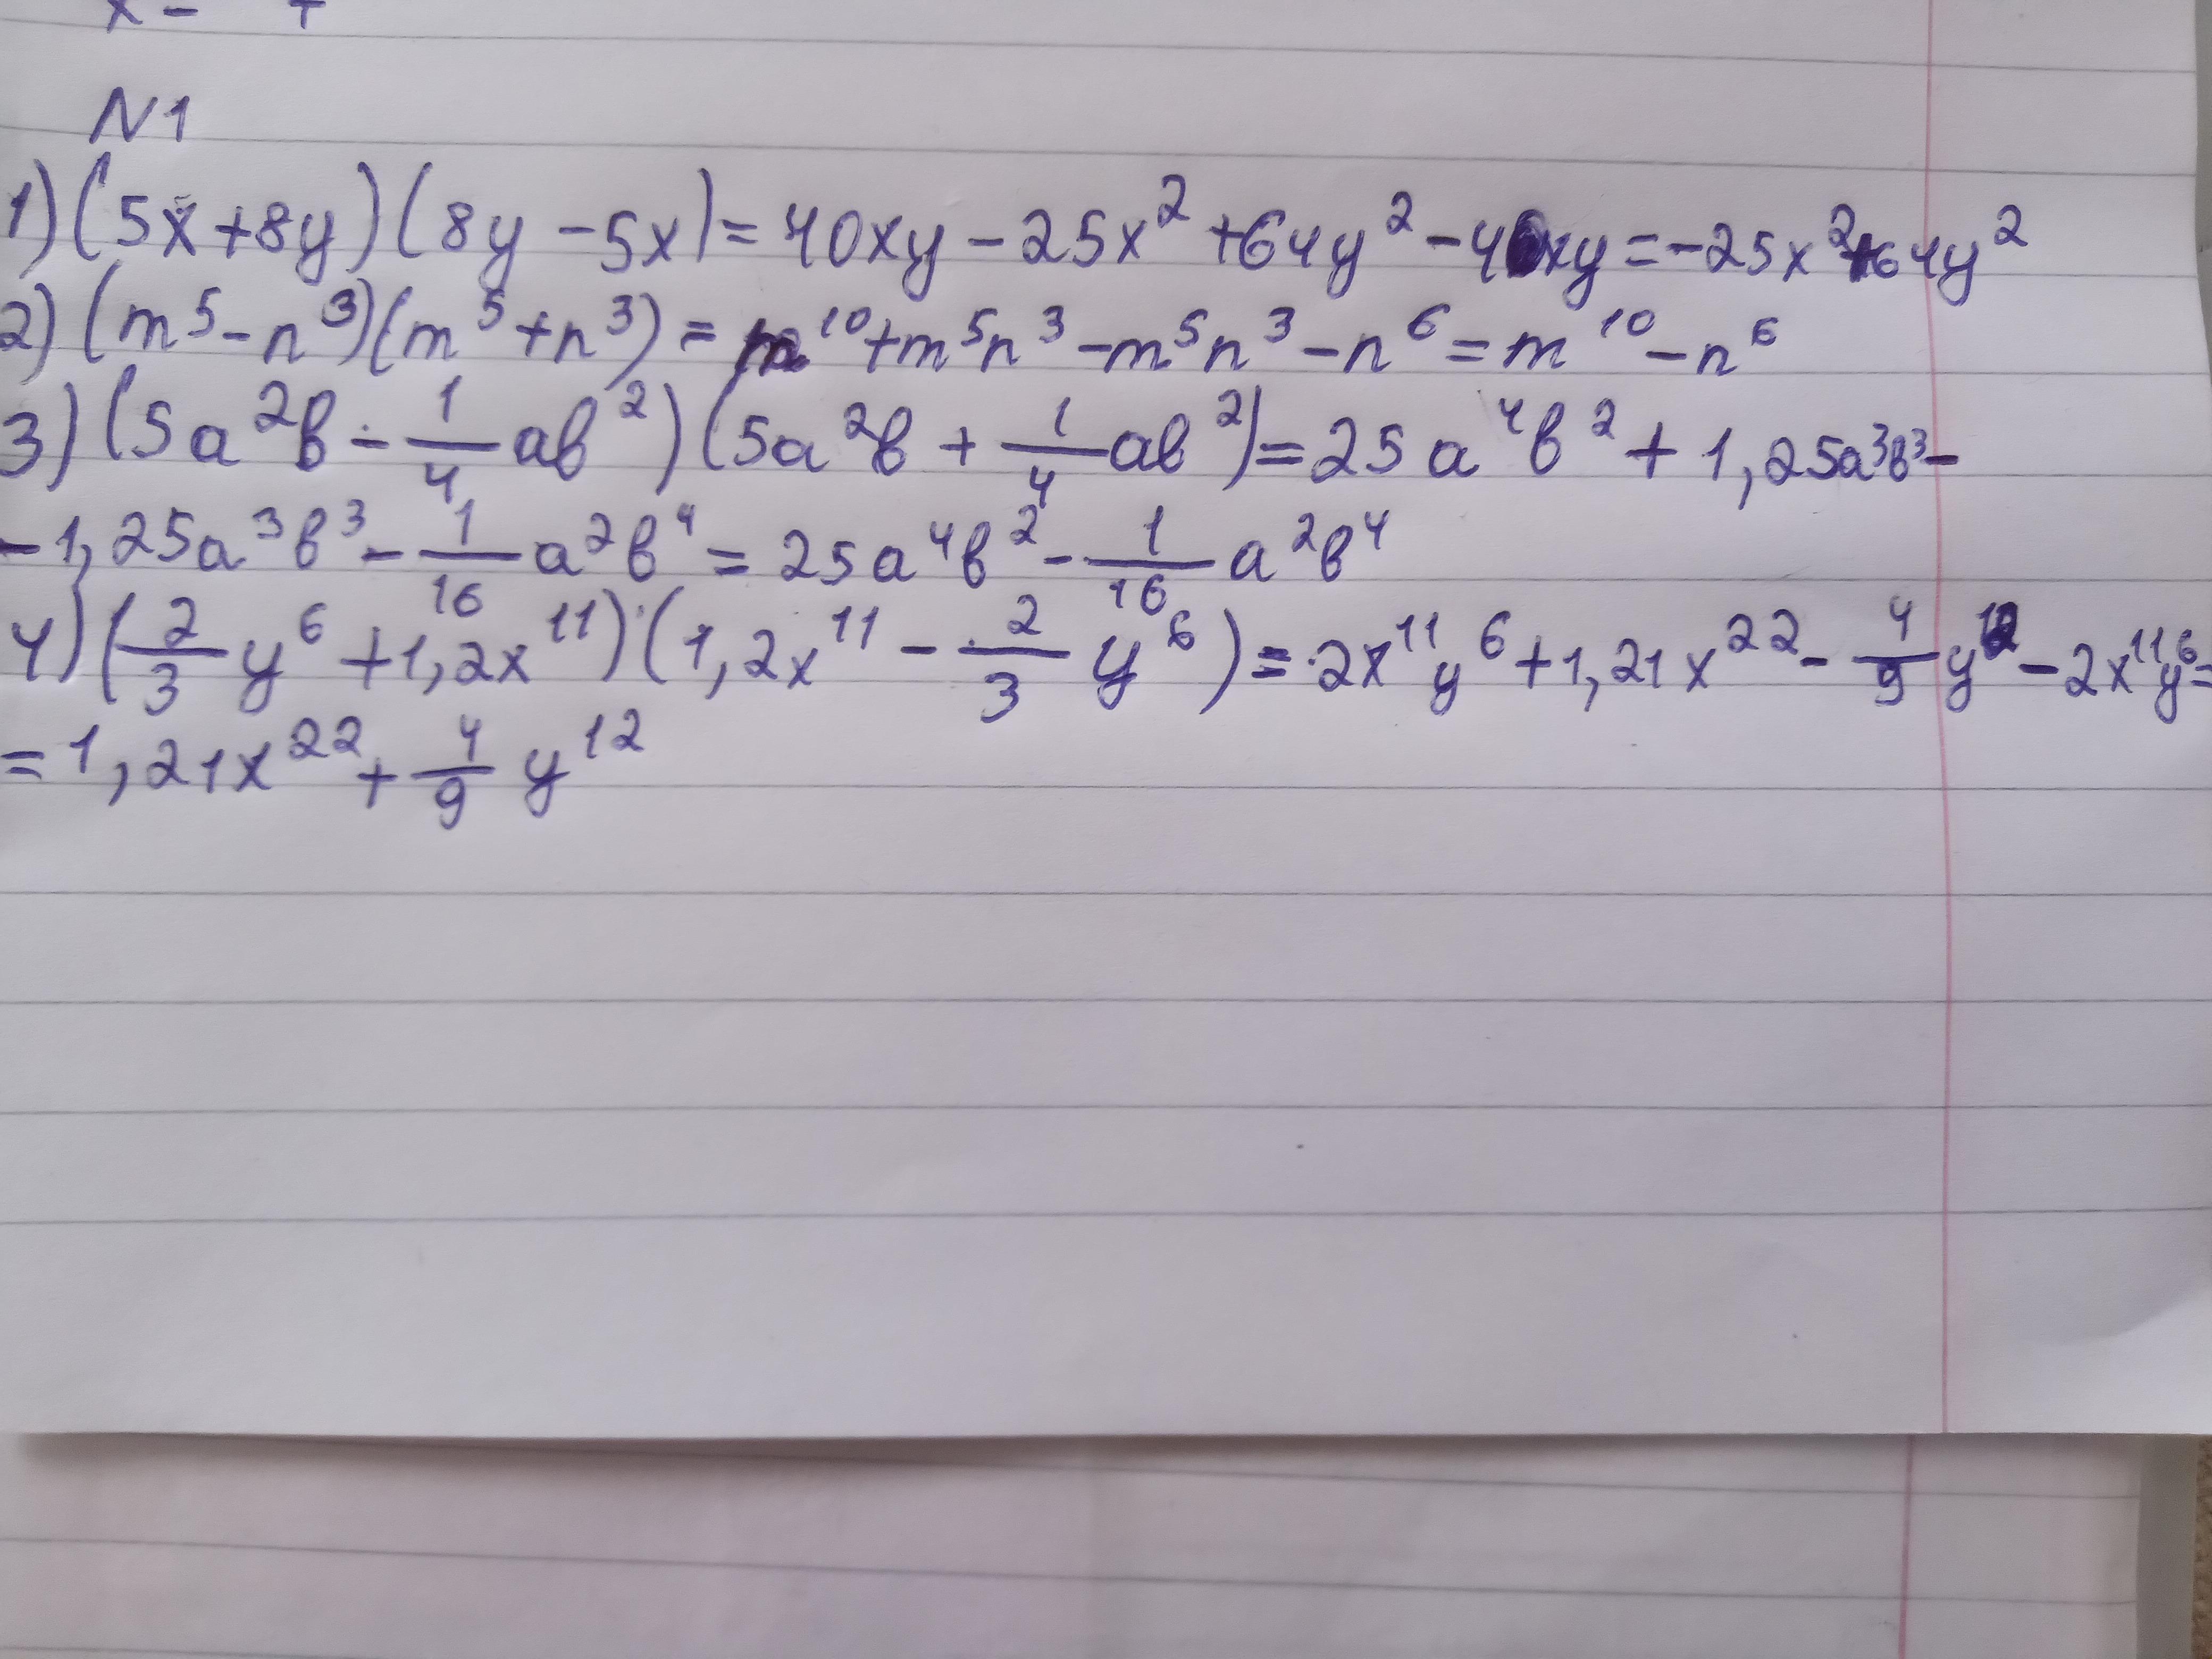 N1
1) (5x+8y)(8y-5x)=40xy-25x²+64y²-40xy=-25x²+64y²
2) (m⁵-n³)(m⁵+n³)=m¹⁰+m⁵n³-m⁵n³-n⁶=m¹⁰-n⁶
3) (5a²b-1/4ab²)(5a²b+1/4ab²)=25a⁴b²+1,25a³b³-
-1,25a³b³-1/16a²b⁴=25a⁴b²-1/16a²b⁴
4) (2/3y⁶+1,2x¹¹)·(1,2x¹¹-2/3y⁶)=2x¹¹y⁶+1,21x²²-4/9y¹²-2x¹¹y⁶=
=1,21x²²+4/9y¹²